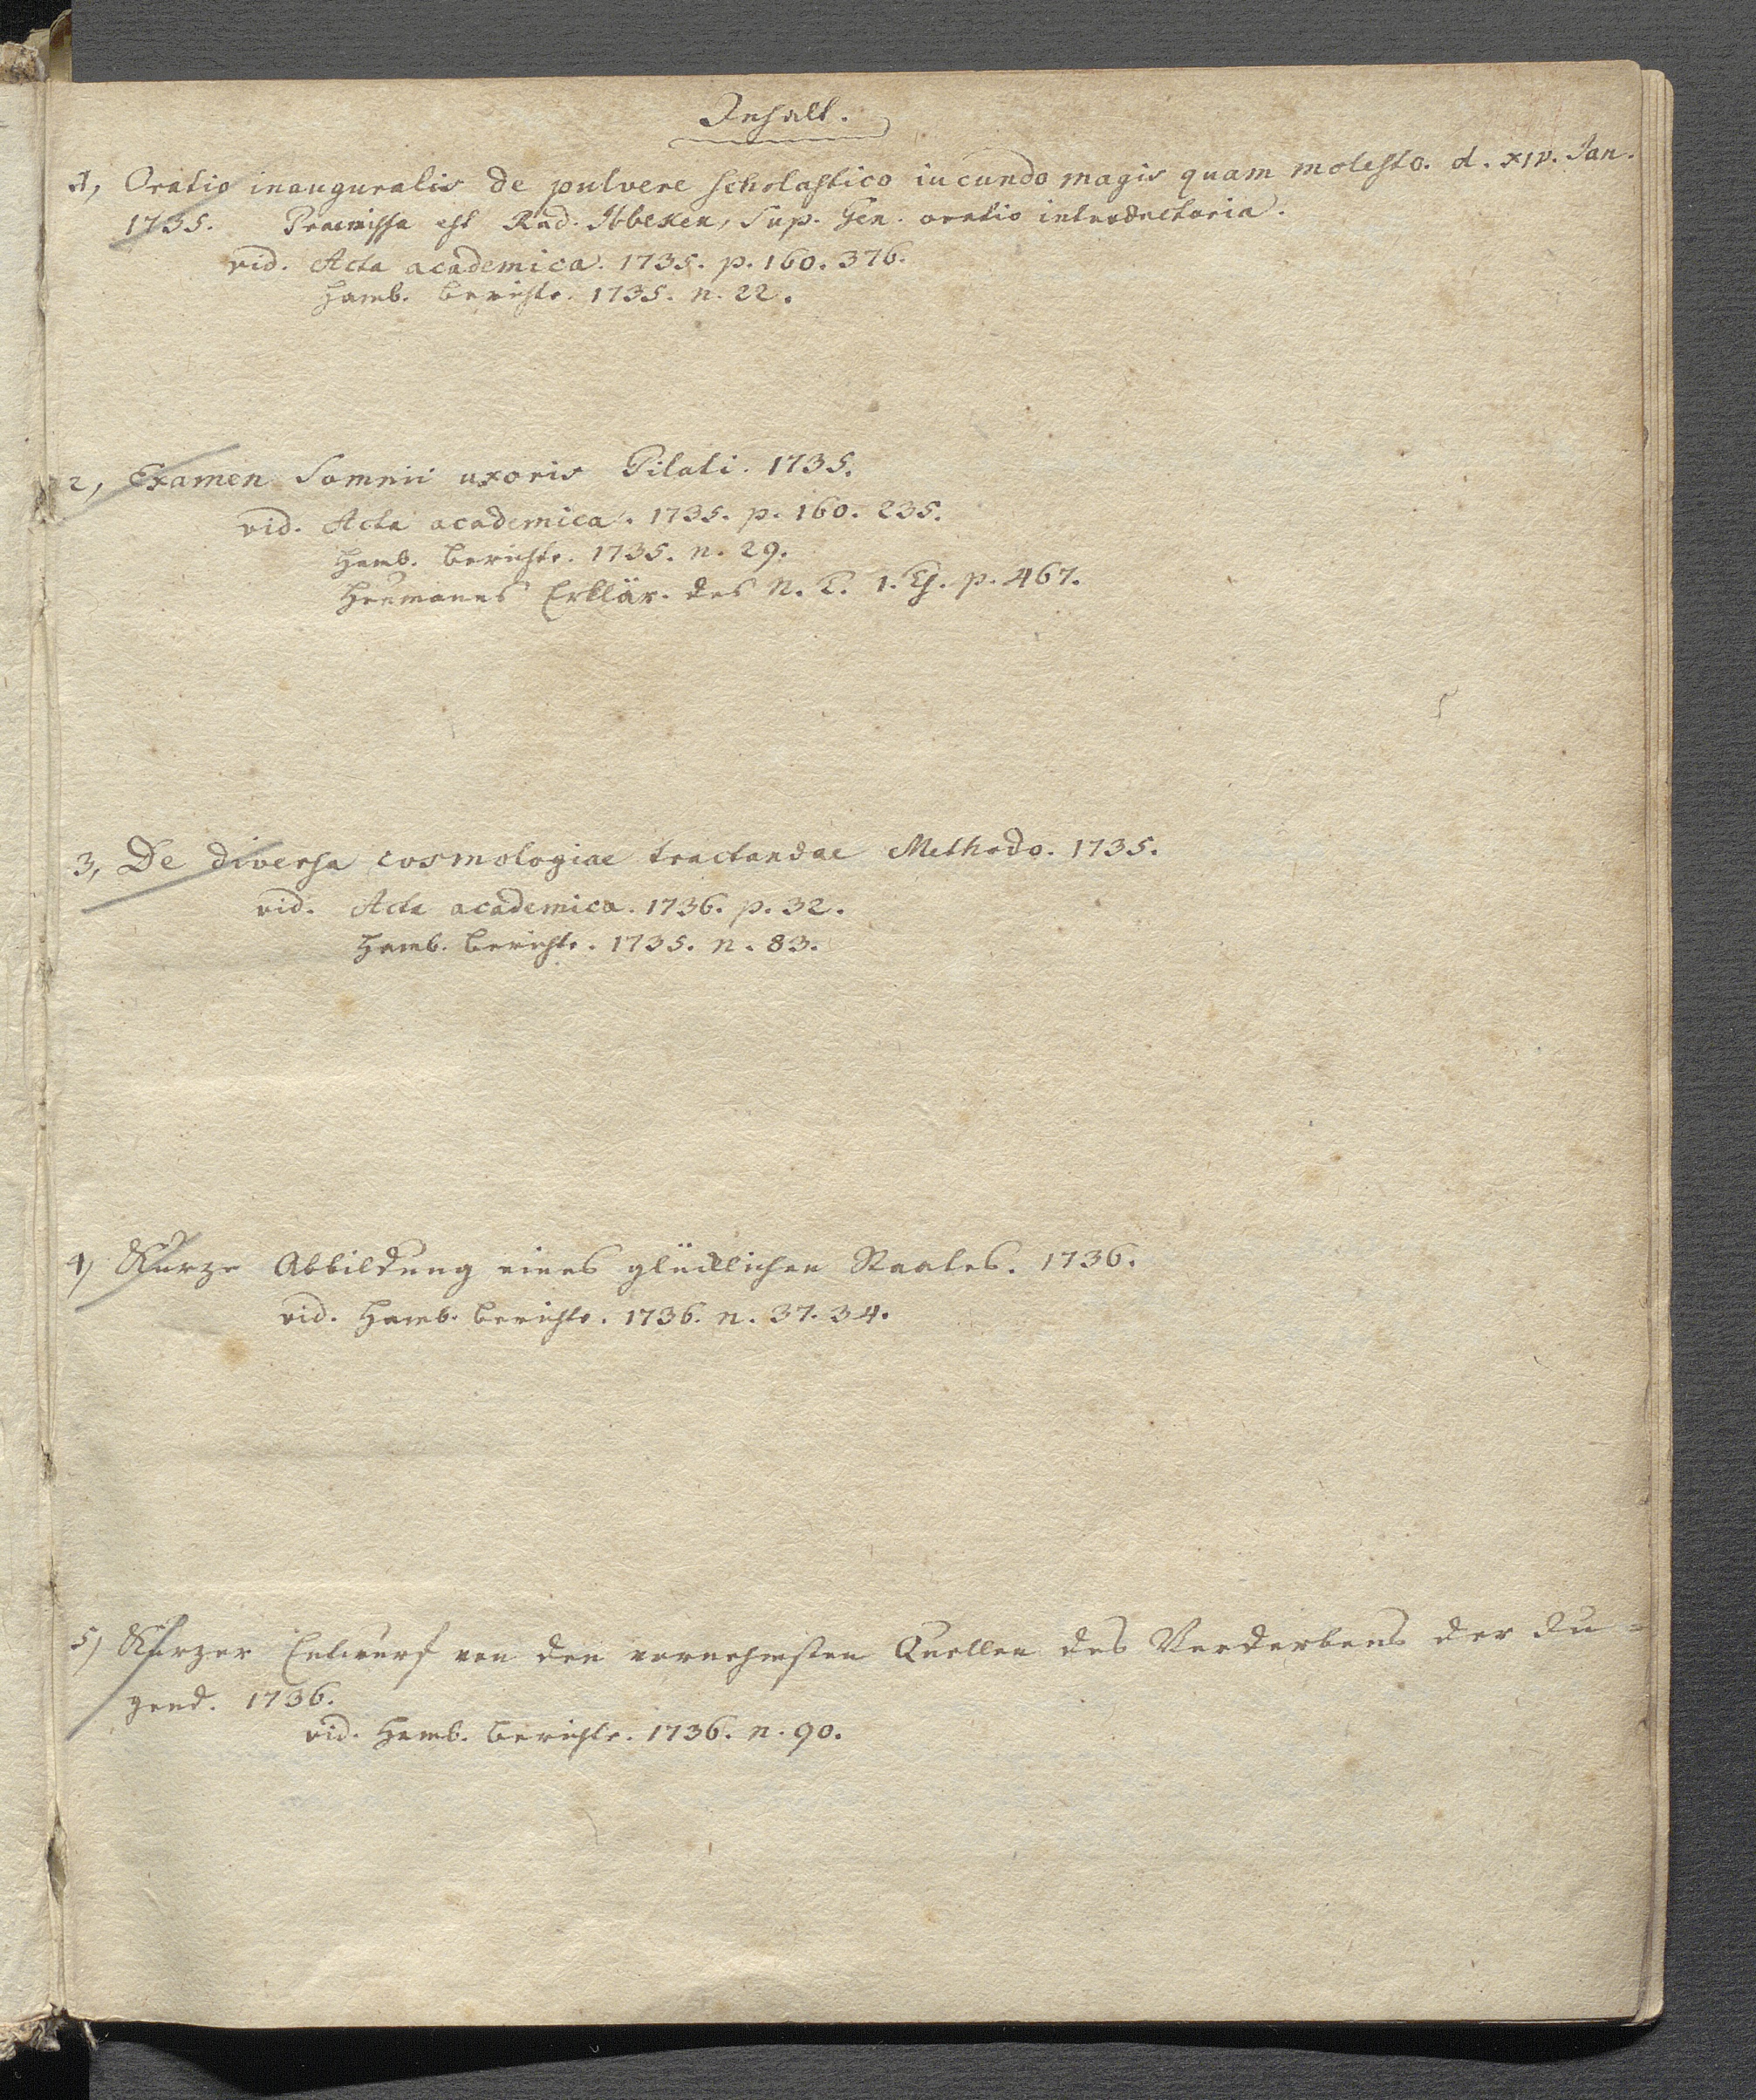 Inhalt.
1, Oratio inauguralis de pulvere scholastico iucundo magis quam molesto. d. XIV. Jan.
1735. Praemissa est Rud. Ibbeken, Sup. Gen. oratio introductoria.
vid. Acta academica. 1735. p. 160. 376.
Hamb. Berichte. 1735. n. 22.
2, Examen Somnii uxoris Pilati. 1735.
vid. Acta academica. 1735. p. 160. 235.
Hamb. Berichte. 1735. n. 29.
Heumanns Erklär. des N. T. 1. Th. p. 467.
3, De diversa cosmologiae tractandae Methodo. 1735.
vid. Acta academica. 1736. p. 32.
Hamb. Berichte. 1735. n. 83.
4) Kurze Abbildung eines glücklichen Staates. 1736.
vid. Hamb. Berichte. 1736. n. 37. 34.
5) Kurzer Entwurf von den vornehmsten Quellen des Verderbens der Ju=
gend. 1736.
vid. Hamb. Berichte. 1736. n. 90.